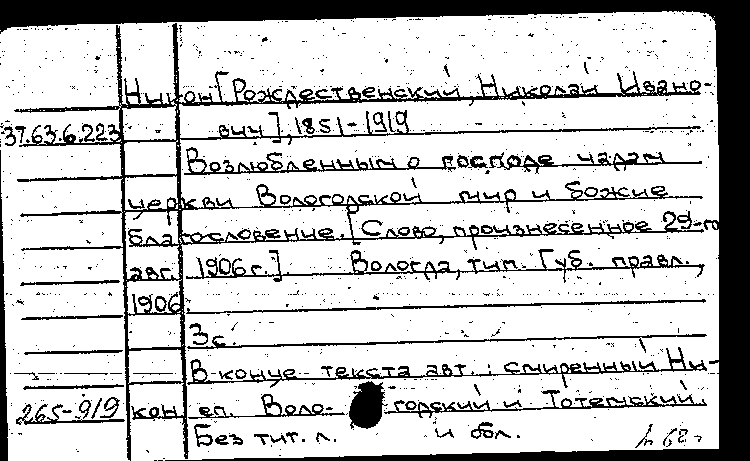 Никон [Рождественский, Николай Ивано-
37.63.6.223 вич], 1851-1919
Возлюбленным о господе чадам
церкви Вологодской мир и божие
благословение. [Слово, произнесенное 29-го
авг. 1906 г.]. Вологда, тип. Губ. правл.,
1906.
3 с.
В конце текста авт.: смиренный Ни-
265-919 кон еп. Воло- годский и Тотемский.
Без тит. л. и обл.